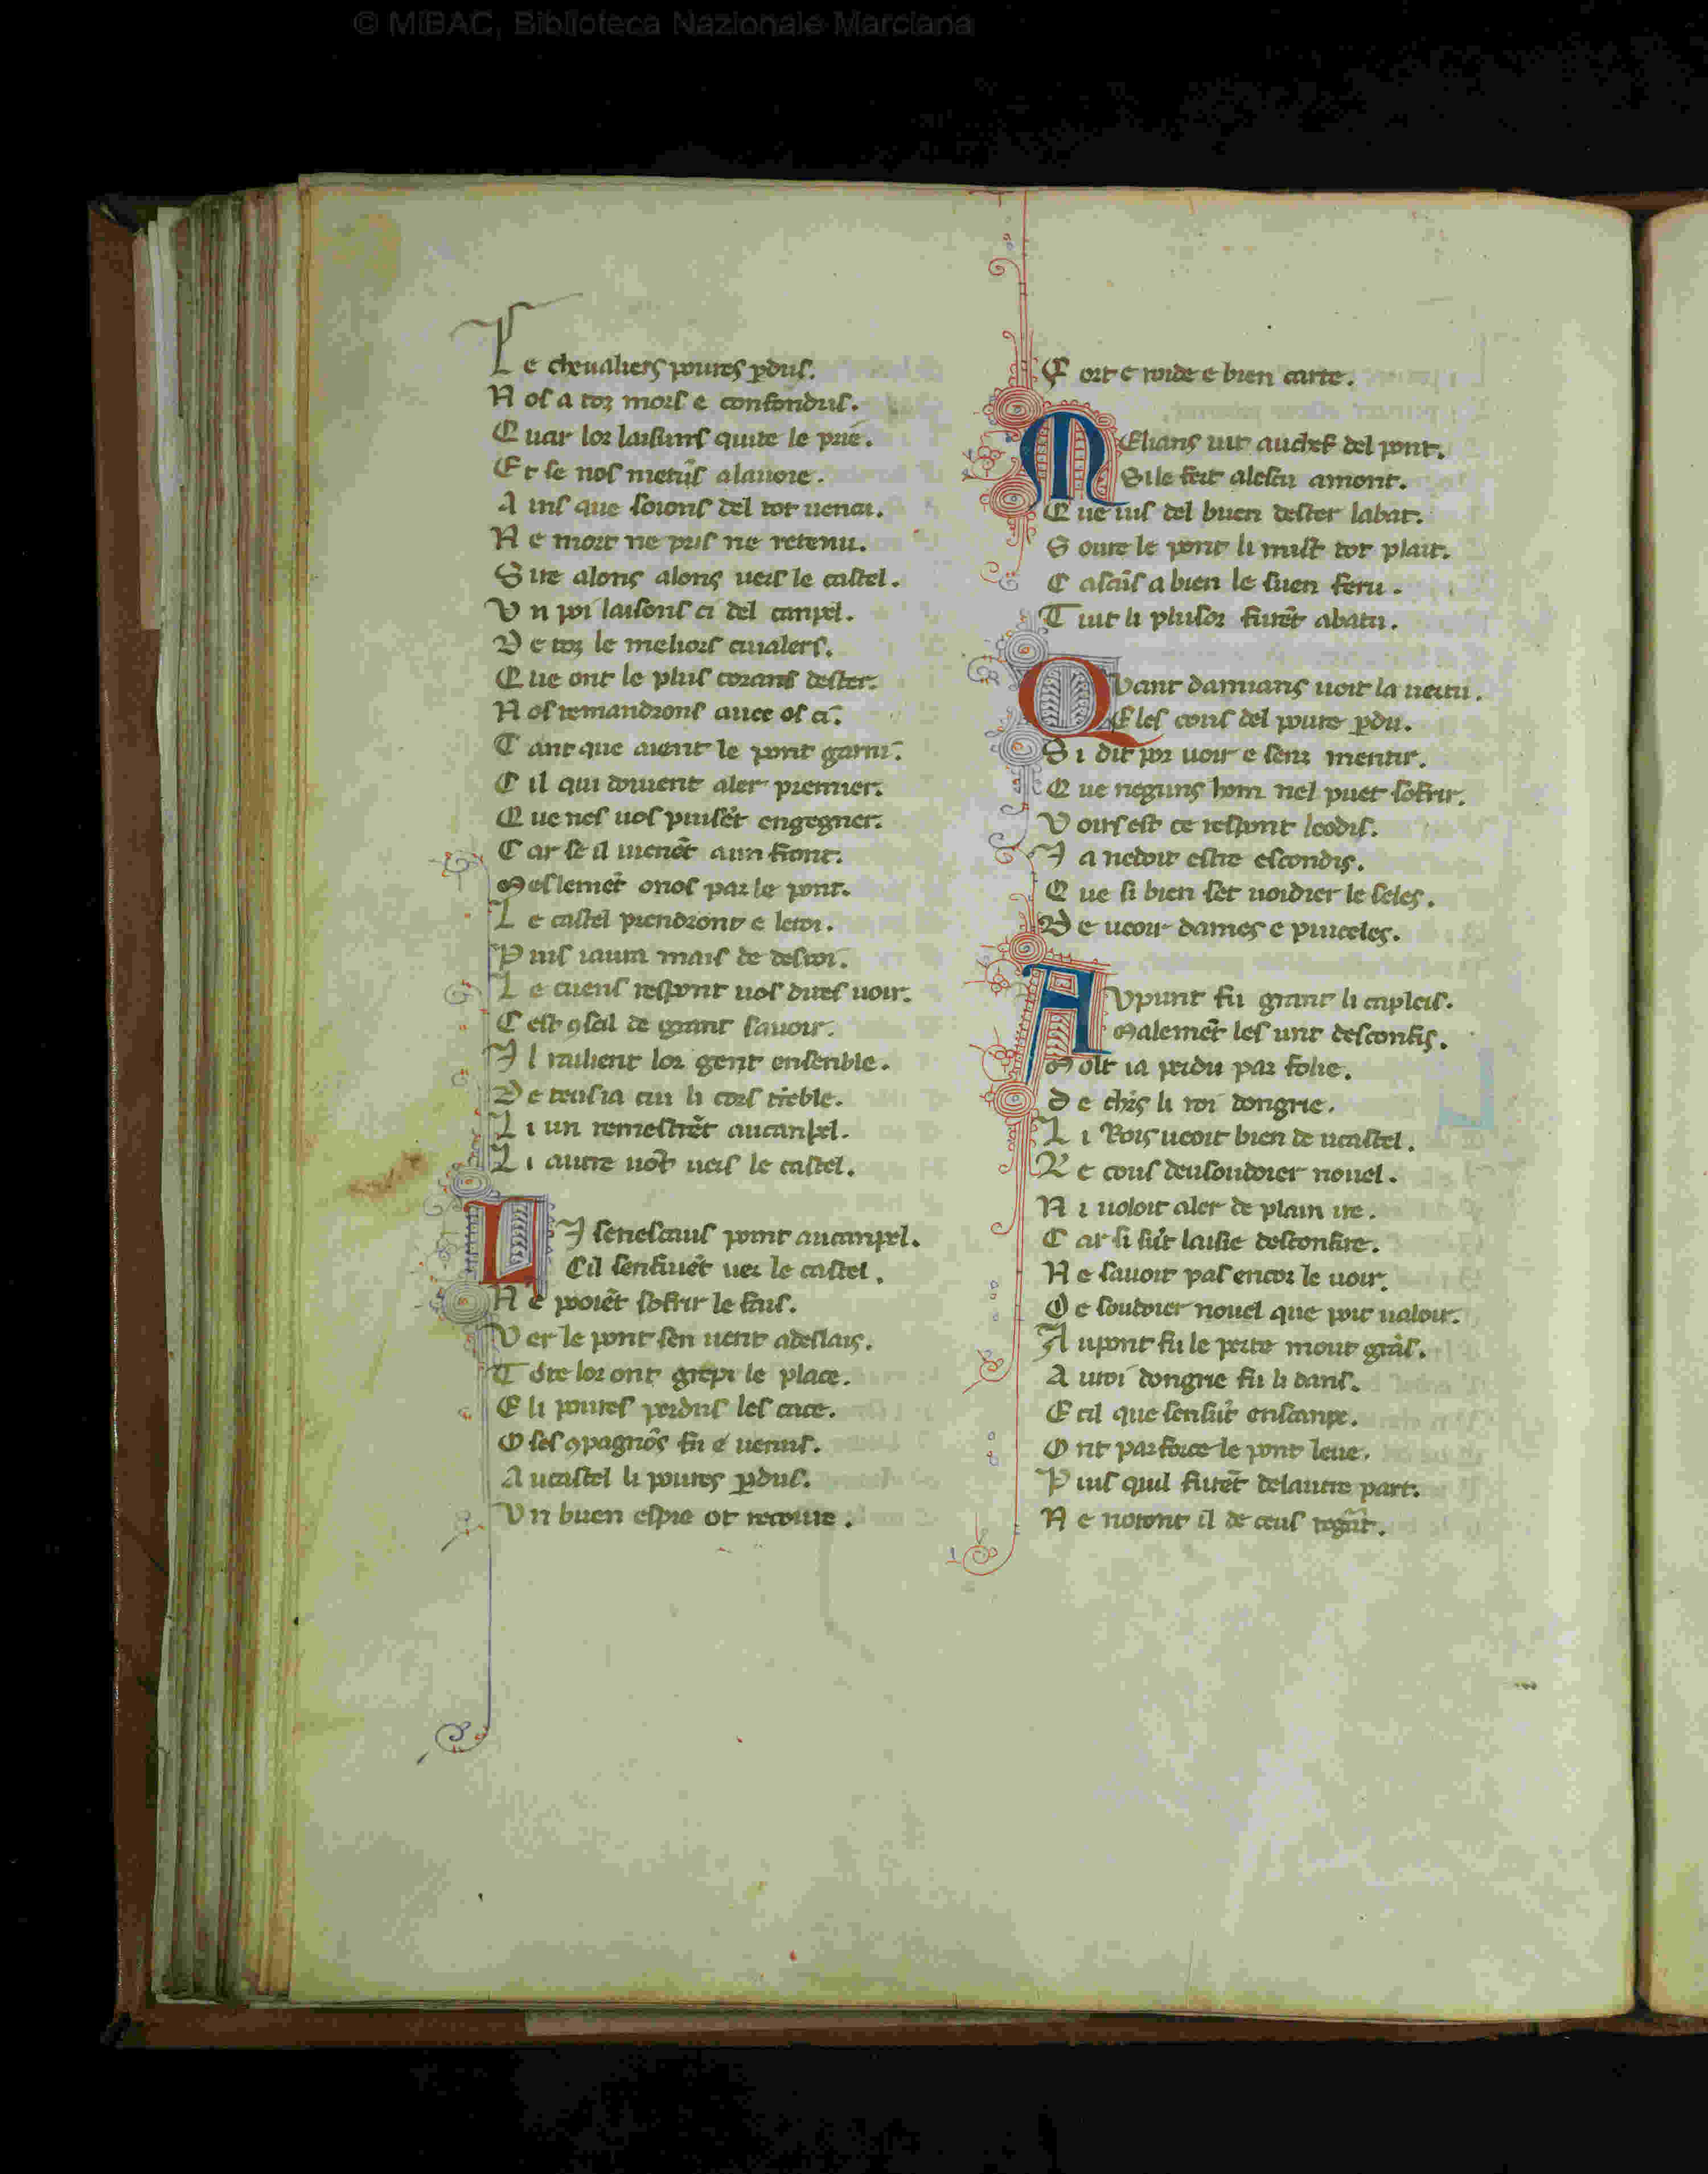 © MiBAC, Biblioteca Nazionale Marciana
Le cheualiers poures ꝑdus.
Nos a toz mors e confondus.
Quar lor laisums quite le pue.
Et se nos metūs alauoie.
Ains que soions del tot uencu.
Ne mort ne pris ne retenu.
Sire alons alons uers le castel.
Un poi laisons ci del canpel.
De toz le meliors ciualers.
Que ont le plus corans dester.
Nos remandrons auec os ci.
Tant que aient le pont garni.
Cil qui doiuent aler premier.
Que nes uos puisēt engegner.
Car se il uienēt aun front.
Meslemēt onos par le pont.
Le castel prendront e letoi.
Puis iaura mais de destoi.
Le cuens respont uos dites uoir.
Cest ꝯseil de grant sauoir.
Il ralient lor gent ensenble.
De teus ia cui li cors trēble.
Li un remestrēt aucanpel.
Li autre uōt uers le castel.
LI senescaus point aucanpel.
Cil senfuiēt uer le castel.
Ne pooiēt sofrir le fais.
Ver le pont sen uent adeslais.
Tote lor ont grepi le place.
E li poures perdus les cace.
O ses ꝯpagnōs fu e uenus.
Aucastel li poures ꝑdus.
Un buen espie ot recoure.
Fort e roide e bien carre.
MElians uit auchef del pont.
Si le fert alescu amont.
Que ius del buen dester labat.
Soure le pont li mist tot plait.
Cascūs a bien le suen feru.
Tuit li plusor furēt abatu.
QUant damians uoit la uertu.
E les cous del poure ꝑdu.
Si dit por uoir e senz mentir.
Que neguns hom nel puet sofrir.
Voirs est ce respont leodis.
Ia nedoit estre escondis.
Que si bien set uoidier le seles.
De ueoir dames e pulceles.
AUpunt fu grant li capleis.
Malemēt les unt desconfis.
Molt ia perdu par folie.
De chrs li roi dongrie.
Li Rois ueoit bien de ucastel.
Le cous deusoudoier nouel.
Ni uoloit aler de plain ire.
Car si fust laisie desconfire.
Ne sauoit pas encor le uoir.
De soudoier nouel que poit ualoir.
Aupont fu le perte mout grās.
Auroi dongrie fu li dans.
E cil que sensūt enscanpe.
Ont par force le pont leue.
Puis quil furēt delautre part.
Ne noiont il de ceus regart.